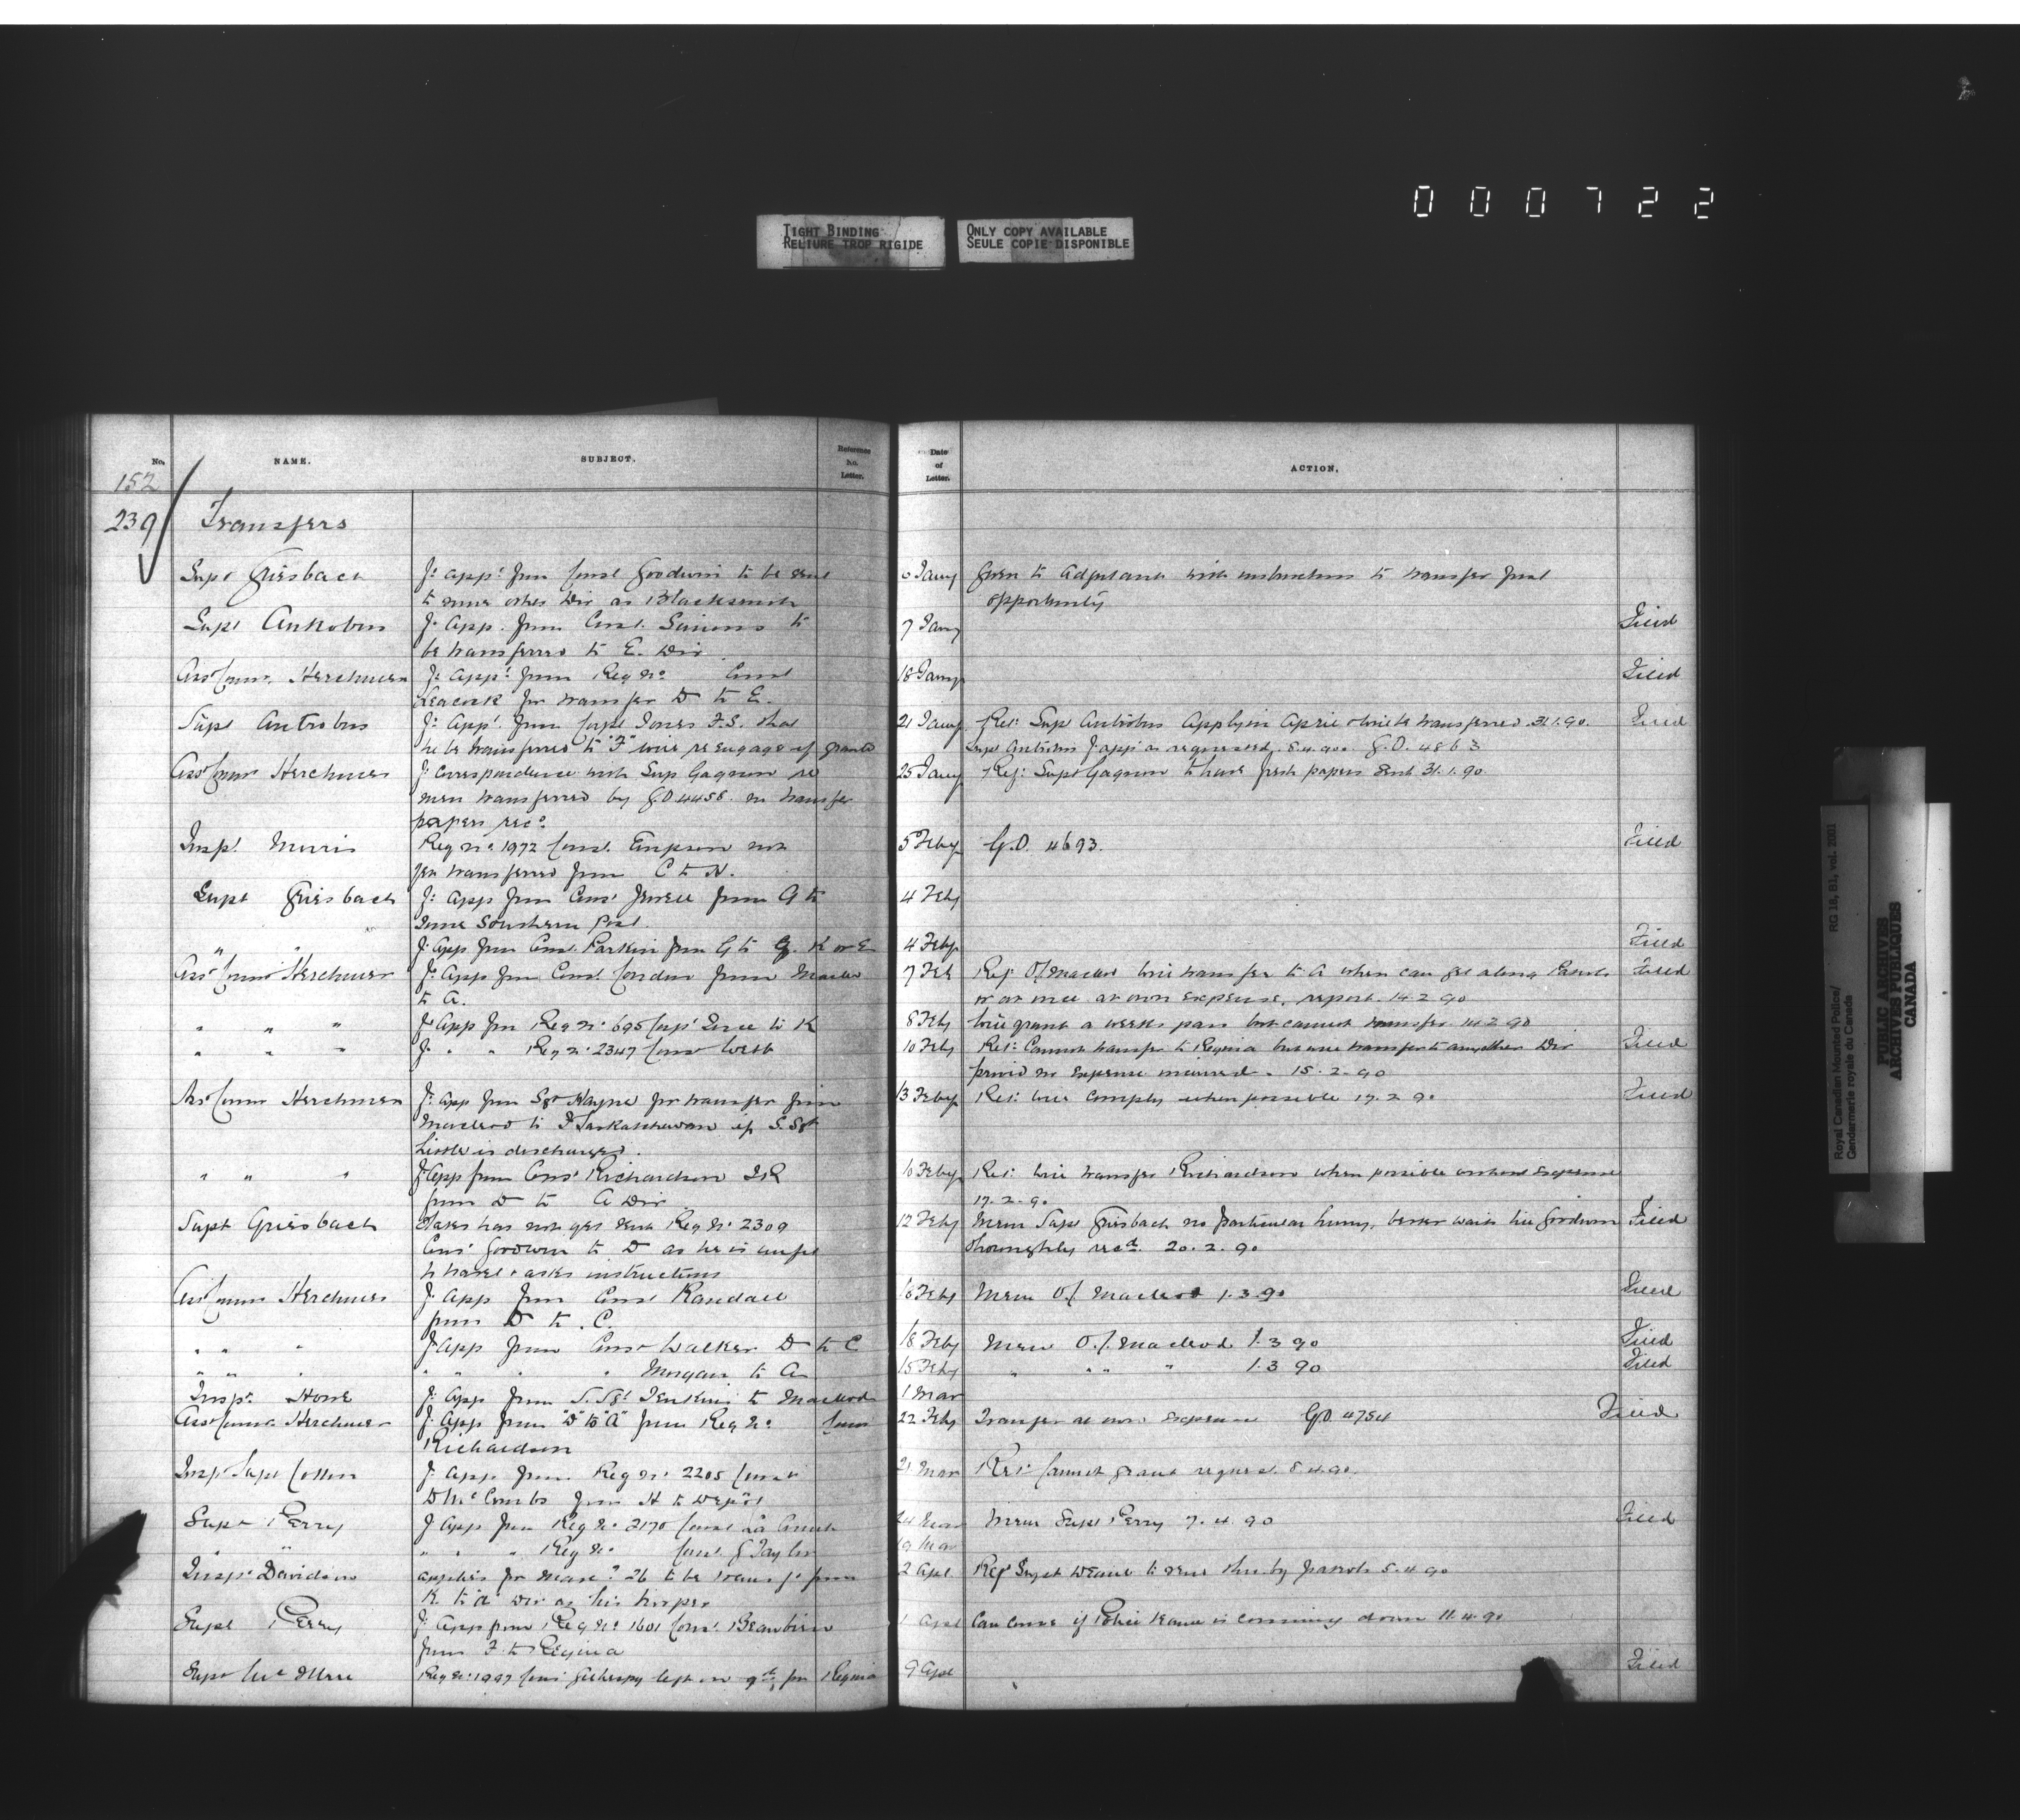 000722
TIGHT BINDING
RELIURE TROP RIGIDE
ONLY COPY AVAILABLE
SEULE COPIE DISPONIBLE
No. NAME. SUBJECT. Reference No. Letter. Date of Letter. ACTION.
152
239 Transfers
Supt Griesbach f: app: from Const Goodwin to be sent 6 Jany Given to Adjutant with instructions to transfer first
to some other Div as Blacksmith opportunity
Supt Antrobus f: app. from Const. Simons to 7 Jany Filed
be transferred to E. Div
Asst Commr Herchmer f: app: from Reg No Const 18 Jany Filed
Leacock for transfer D to E.
Supt Antrobus f: app: from Corpl Jones F.S. that 21 Jany Rep: Supt Antrobus Apply in April to be transferred 31.1.90. Filed
he be transferred to "F" will re engage if granted Supt Antrobus f app as requested. 8.4.90. G.O. 4863
Asst Commr Herchmer f: correspondence with Supt Gagnon re 25 Jany Rep: Supt Gagnon to have fresh papers sent 31.1.90.
men transferred by G.O 4458. no transfer
papers recd
Inspr Morris Reg No 1972 Const. not 5 Feby G.O. 4693. Filed
yet transferred from C to H.
Supt Griesbach f: app from Const Jowett from G to 4 Feby
some Southern Post.
" " f: App from Const. Parkin from G to K or E 4 Feby Filed
Asst Commr Herchmer f: App from Const. Condon from Macleod 7 Feb Rep O/C Macleod will transfer to A when can get along Patrols Filed
to A. or at once at own expense, report. 14.2.90
" " " f App from Reg No 695 Corpl to K 8 Feby Will grant a weeks pass but cannot transfer 14.2.90
" " " f: " " Reg No 2347 Const Webb 10 Feby Rep: Cannot transfer to Regina but will transfer to any other Div Filed
provid no expense incurred. 15.2.90
Asst Commr Herchmer f: app from Sgt Hayne for transfer from 13 Feby Rep: will comply when possible 17.2.90 Filed
Macleod to F Saskatchewan if S. Sgt
Little is discharged.
" " " f App from Const Richardson J.R 16 Feby Rep: will transfer Richardson when possible without Expense
from D to A Div 17.2.90
Supt Griesbach States has not yet sent Reg No 2309 12 Feby Memo Supt Griesbach no particular hurry, better wait till Goodwin Filed
Const Goodwin to D as he is unfit thoroughly recd. 20.2.90
to travel & asks instructions
Asst Commr Herchmer f: app from Const Randall 16 Feby Memo O/C Macleod 1.3.90 Filed
from D to C.
" " " f App from Const Walker D to C 18 Feby Memo O/C Macleod 1.3.90 Filed
" " " " " " Morgan to A 15 Feby " " " " 1.3.90 Filed
Inspr. Howe f: App from S. Sgt Jenkins to Macleod 1 Mar
Asst Commr Herchmer f: App from "D" to "A" from Reg No Const 22 Feby Transfer at own Expense G.O 4754 Filed
Richardson
Insp Supt Cotton f: App from Reg No 2205 Const 21 Mar Rep: Cannot grant request. 8.4.90.
D McCombs from H to Depôt
Supt Perry f App from Reg No 2170 Const 24 Mar Memo Supt Perry 7.4.90 Filed
" " " " " Reg No Const. G Taylor 19 Mar
Inspr Davidson applies for Mare 26 to be transfd from 2 Apl. Rep to send thro by patrols 5.4.90
K to "A" Div as his
Supt Perry f: App from Reg No 1601 Const. Beaubien 1 Apl Can come if Police team is coming down 11.4.90
from F to Regina
Reg No 1997 Const left on 9th for Regina 9 Apl Filed
Royal Canadian Mounted Police/ RG 18, B1, vol. 2001
Gendarmerie royale du Canada
PUBLIC ARCHIVES
ARCHIVES PUBLIQUES
CANADA